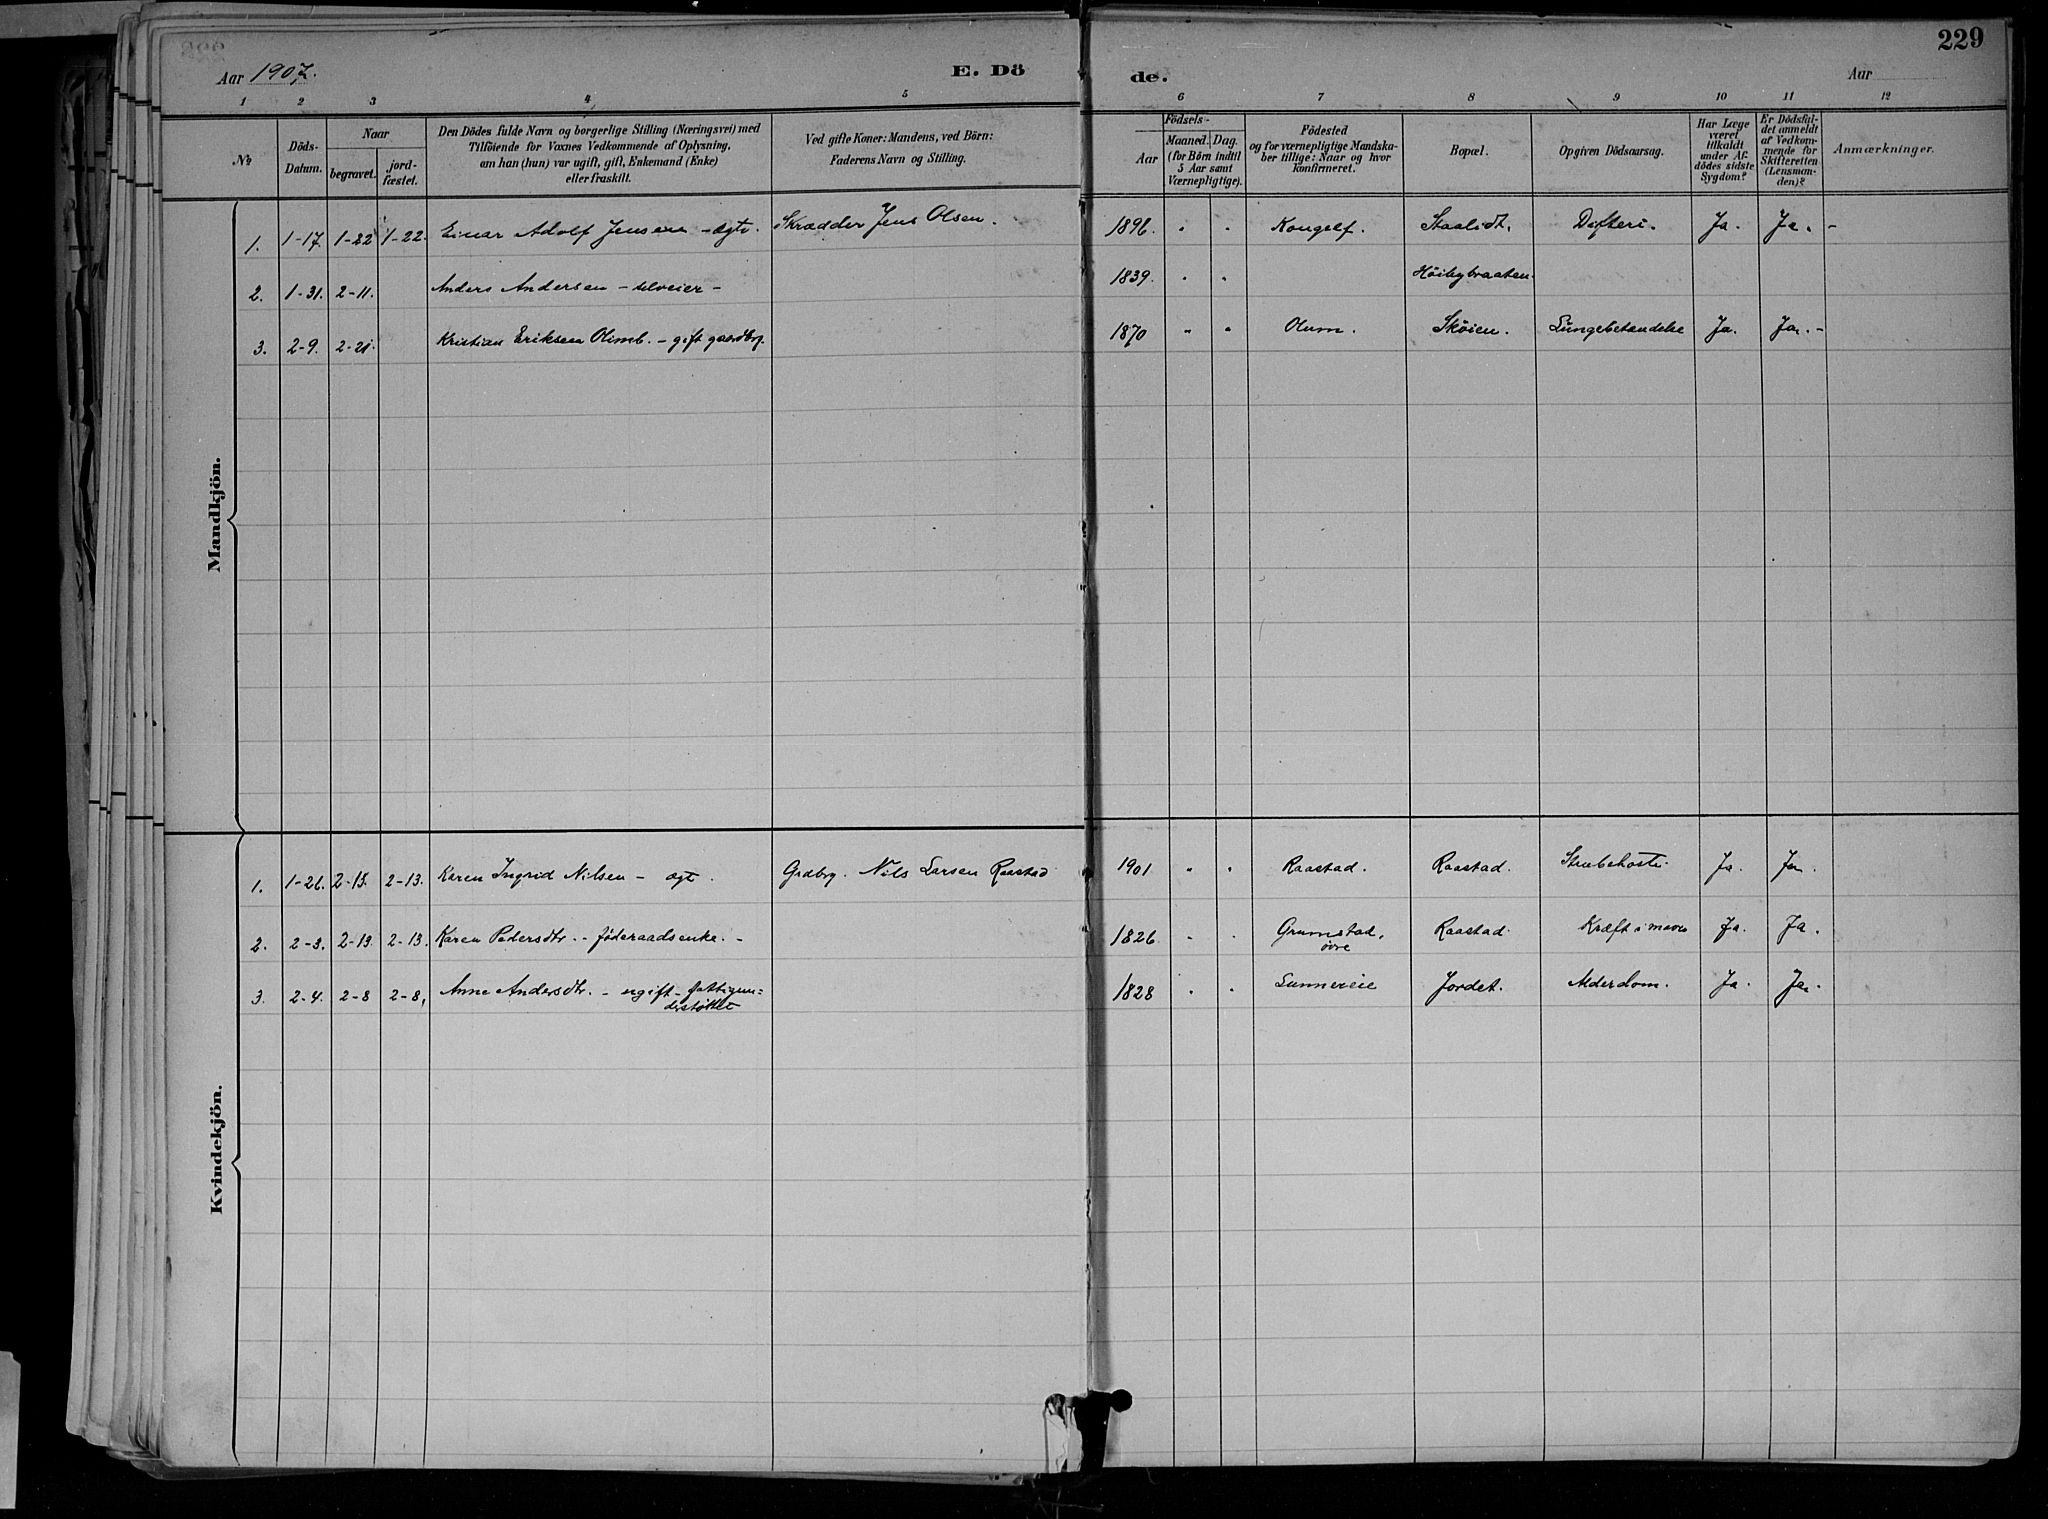 229
Aar 1907.
E. Dö
de.
Aar
1 2 3 4 5 6 7 8 9 10 11 12
№
Döds-
Datum.
Naar
begravet.
jord-
fæstet.
Den Dödes fulde Navn og borgerlige Stilling (Næringsvei) med
Tilföiende for Voxnes Vedkommende af Oplysning,
om han (hun) var ugift, gift, Enkemand (Enke)
eller fraskilt.
Ved gifte Koner: Mandens, ved Börn:
Faderens Navn og Stilling.
Födsels-
Aar
Maaned. Dag.
(for Börn indtil
5 Aar samt
Værnepligtige).
Födested
og for værnepligtige Mandska-
ber tillige: Naar og hvor
konfirmeret.
Bopæl.
Opgiven Dödsaarsag.
Har Læge
været
tilkaldt
under Af-
dödes sidste
Sygdom?
Er Dödsfal-
det anmeldt
af Vedkom-
mende for
Skifteretten
(Lensman-
den)?
Anmærkninger.
Mandkjön.
1. 1-17. 1-22 1-22. Einar Adolf Jensen - ægte. Skrædder Jens Olsen. 1896. " " Kongelf. Staalidt. Difteri. Ja. Ja. -
2. 1-31. 2-11. Anders Andersen - selveier - 1839. " " Höibybraaten.
3. 2-9. 2-21. Kristian Eriksen - gift gaardbrg. 1870 " " Olum. Sköien. Lungebetændelse Ja. Ja. -
Kvindekjön.
1. 1-26. 2-13. 2-13. Karen Ingrid Nilsen - ægt. Grdbrg. Nils Larsen Raastad 1901 " " Raastad. Raastad. Strubehoste. Ja. Ja.
2. 2-3. 2-13. 2-13. Karen Pedersdtr. - föderaadsenke. - 1826. " " Grumstad, Raastad. Kræft i maven Ja. Ja.
övre
3. 2-4. 2-8 2-8, Anne Andersdtr. - ugift - fattigun-
derstöttet
1828 " " Lunneeie Jordet. Alderdom. Ja. Ja.